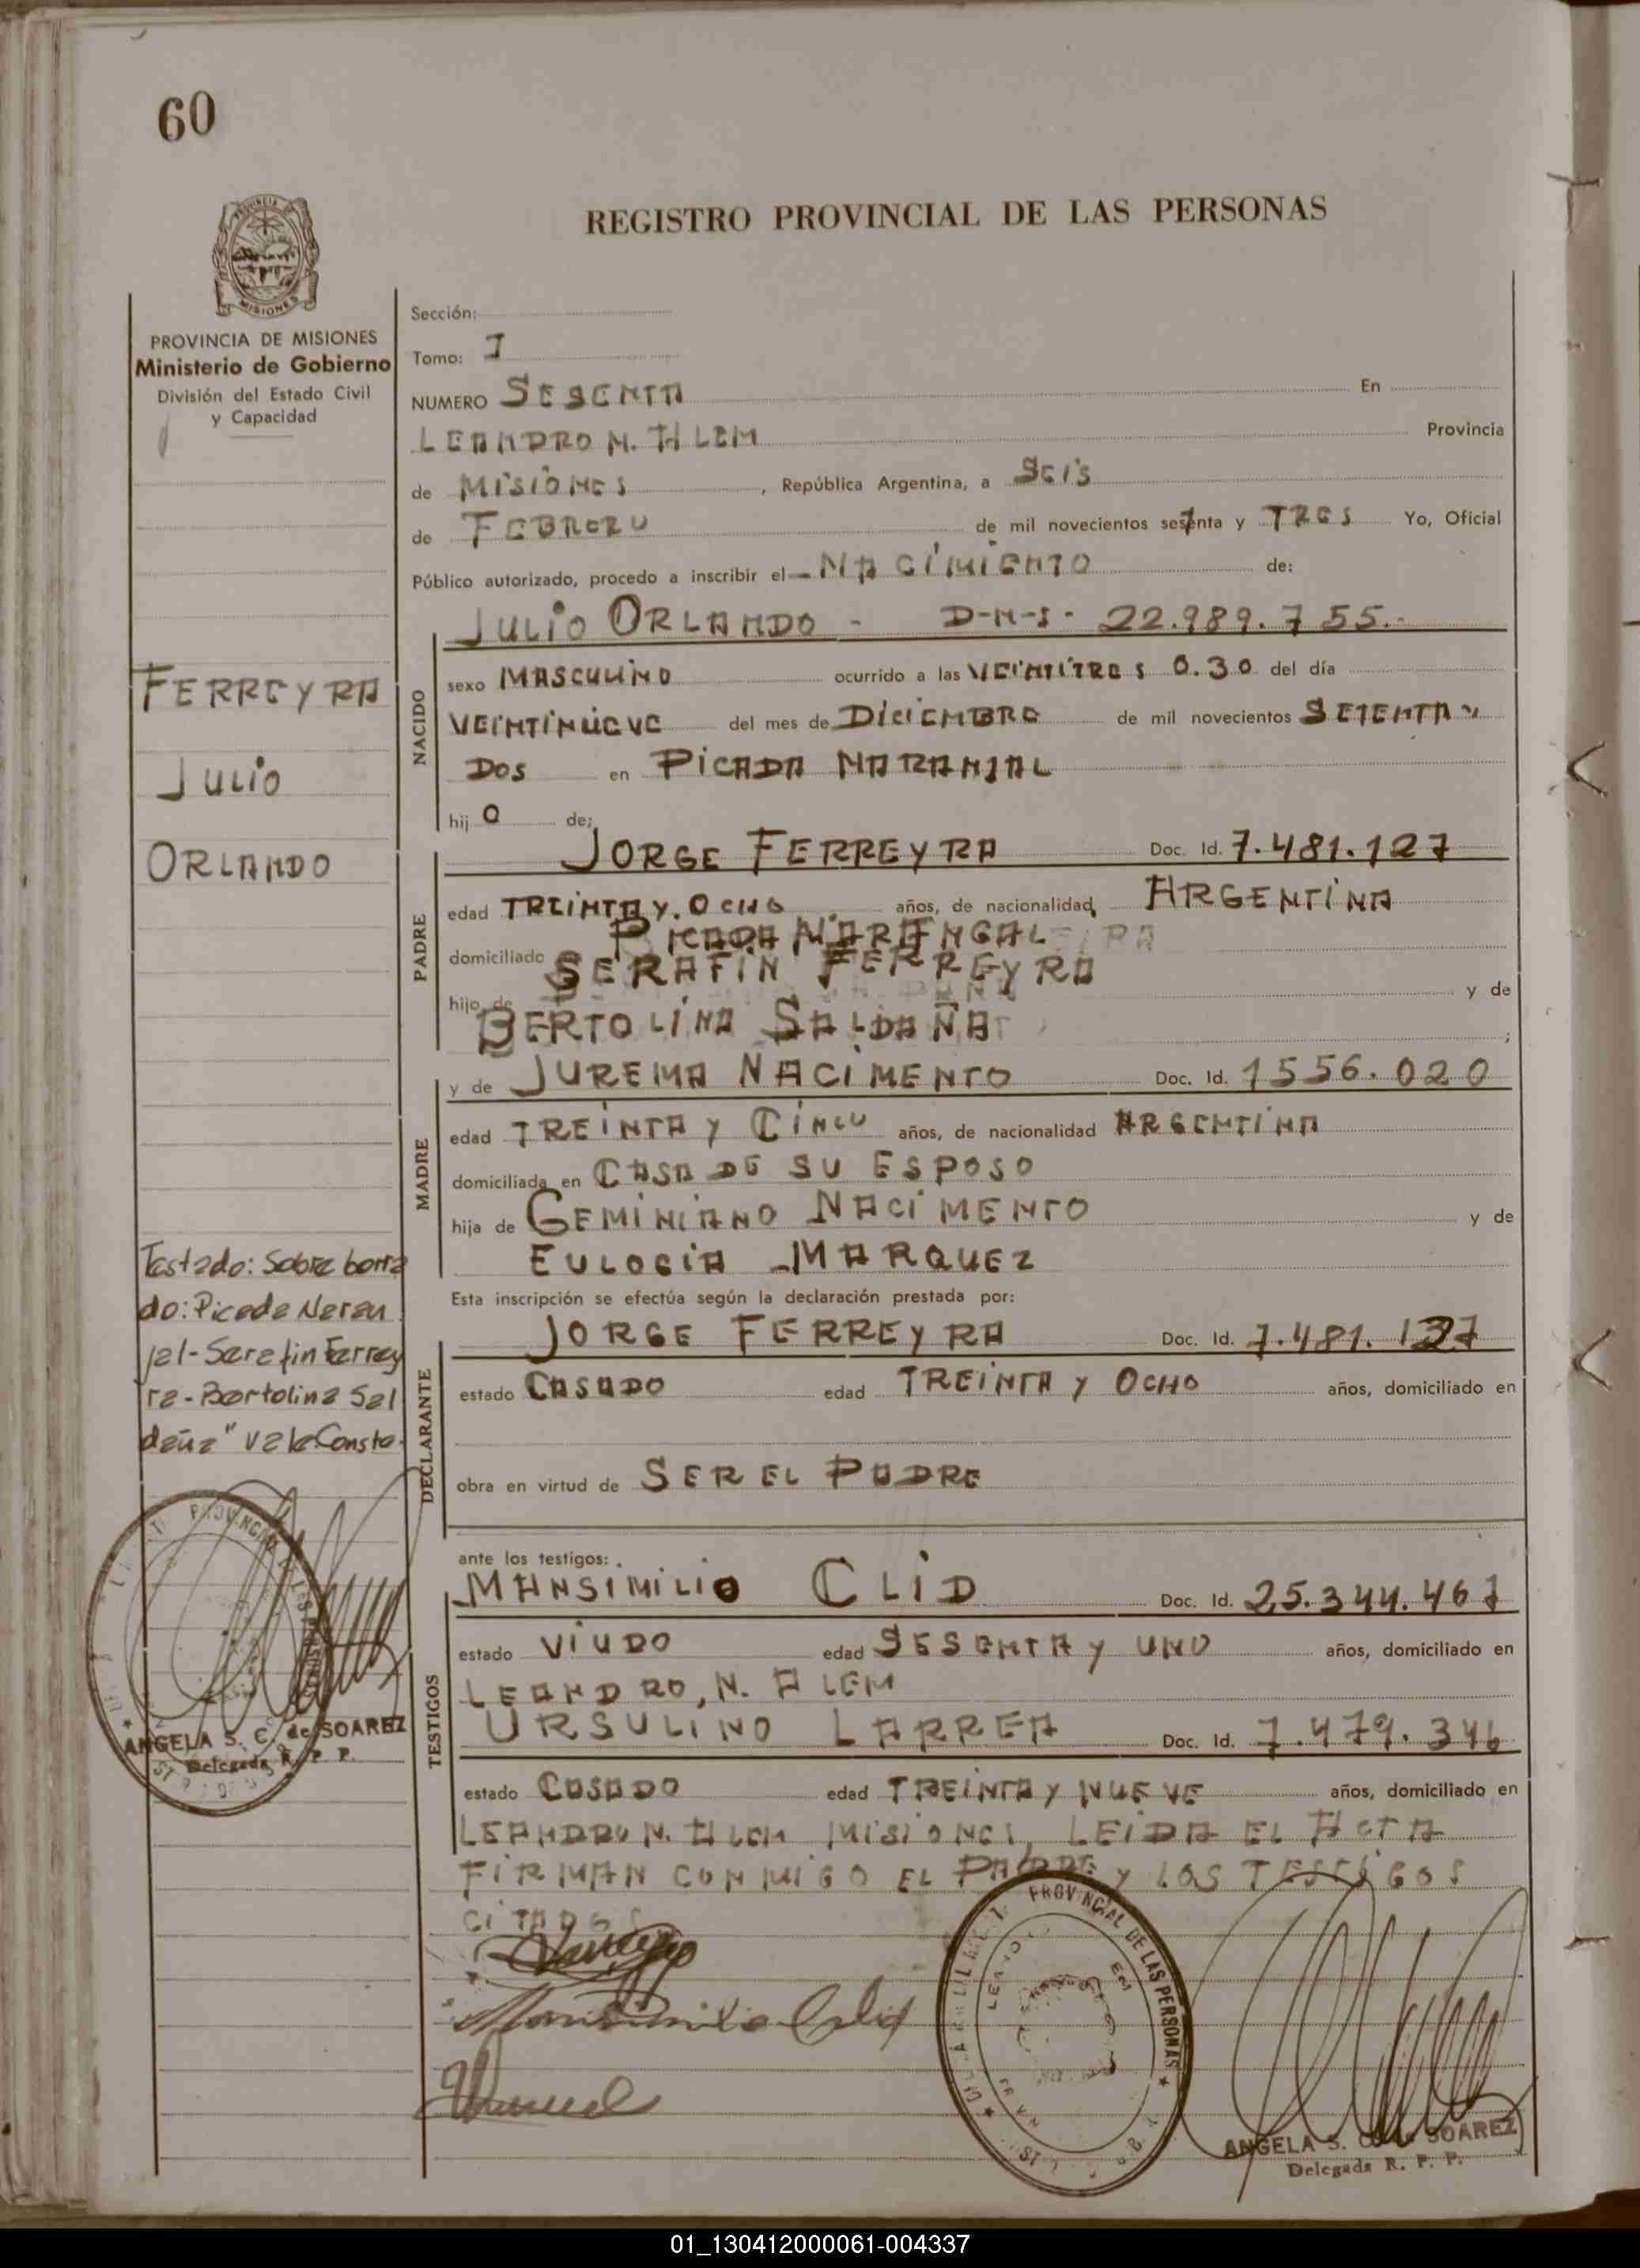 60
REGISTRO PROVINCIAL DE LAS PERSONAS
PROVINCIA DE MISIONES
Ministerio de Gobierno
División del Estado Civil
y Capacidad
FERREYRA
JULIO
ORLANDO
Testado: Sobre borra
do: Picada Naran
jal - Serafin Ferrey
ra - Bertolina Sal
daña" Vale Consta.
ANGELA S. C. de SOAREZ
Delegada R. P. P.
Sección:
Tomo: I
NUMERO SESENTA En
LEANDRO N. ALEM Provincia
de MISIONES, República Argentina, a SEIS
de FEBRERO de mil novecientos setenta y TRES Yo, Oficial
Público autorizado, procedo a inscribir el NACIMIENTO de:
JULIO ORLANDO - D-N-I- 22.989.755.-
NACIDO
sexo MASCULINO ocurrido a las VEINTITRES 0.30 del día
VEINTINUEVE del mes de DICIEMBRE de mil novecientos SETENTA Y
DOS en PICADA NARANJAL
hij O de;
PADRE
JORGE FERREYRA Doc. Id. 7.481.127
edad TREINTA Y OCHO años, de nacionalidad ARGENTINA
domiciliado PICADA NARANGAL
SERAFIN FERREYRA
hijo de y de
BERTOLINA SALDAÑA ;
MADRE
y de JUREMA NACIMENTO Doc. Id. 1556.020
edad TREINTA Y CINCO años, de nacionalidad ARGENTINA
domiciliada en CASA DE SU ESPOSO
hija de GEMINIANO NACIMENTO y de
EULOGIA MARQUEZ
Esta inscripción se efectúa según la declaración prestada por:
DECLARANTE
JORGE FERREYRA Doc. Id. 7.481.127
estado CASADO edad TREINTA Y OCHO años, domiciliado en
obra en virtud de SER EL PADRE
ante los testigos:
TESTIGOS
MANSIMILIO CLID Doc. Id. 25.344.467
estado VIUDO edad SESENTA Y UNO años, domiciliado en
LEANDRO, N. ALEM
URSULINO LARREA Doc. Id. 7.479.346
estado CASADO edad TREINTA Y NUEVE años, domiciliado en
LEANDRO N. ALEM MISIONES, LEIDA EL ACTA
FIRMAN CONMIGO EL PADRE Y LOS TESTIGOS
CITADOS
PROVINCIAL DE LAS PERSONAS
ANGELA S. C. de SOAREZ
Delegada R. P. P.
01_130412000061-004337